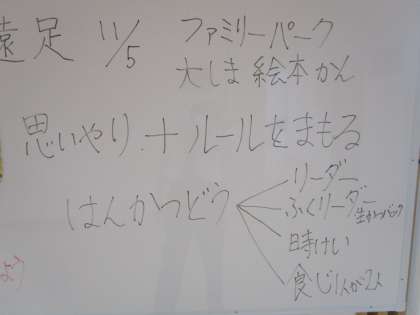 遠足 11/5 ファミリーパーク
大しま絵本かん
思いやり.+ルールをまもる
はんかつどう
リーダー
ふくリーダー
時けい
食じ1人か2人
よう